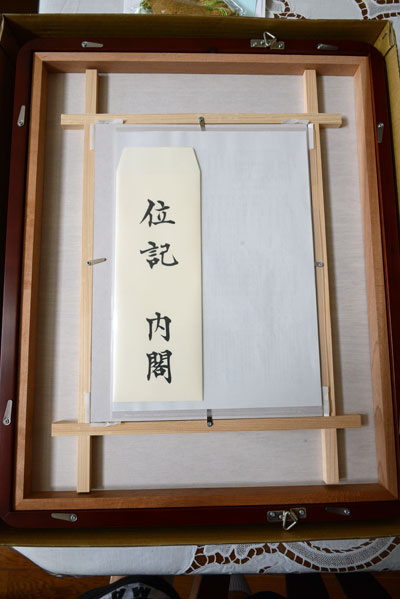 位記 内閣